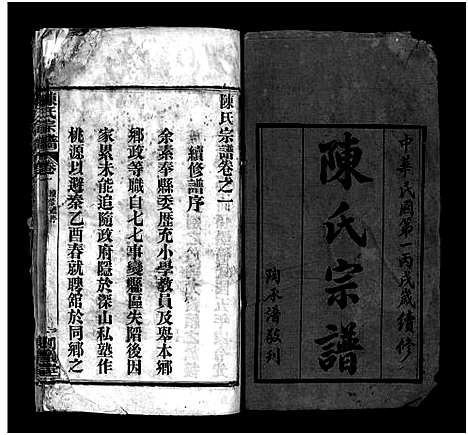 中華民國第一丙戌歲續修
陳氏宗譜
陳氏宗譜卷之一
續修譜序
余素奉縣委歷充小學教員及舉本鄉
鄉政等職自七七事變縣區失陷後因
家累未能追隨政府隱於深山私塾作
桃源以避秦乙酉春就聘館於同鄉之
陳氏宗譜
卷一